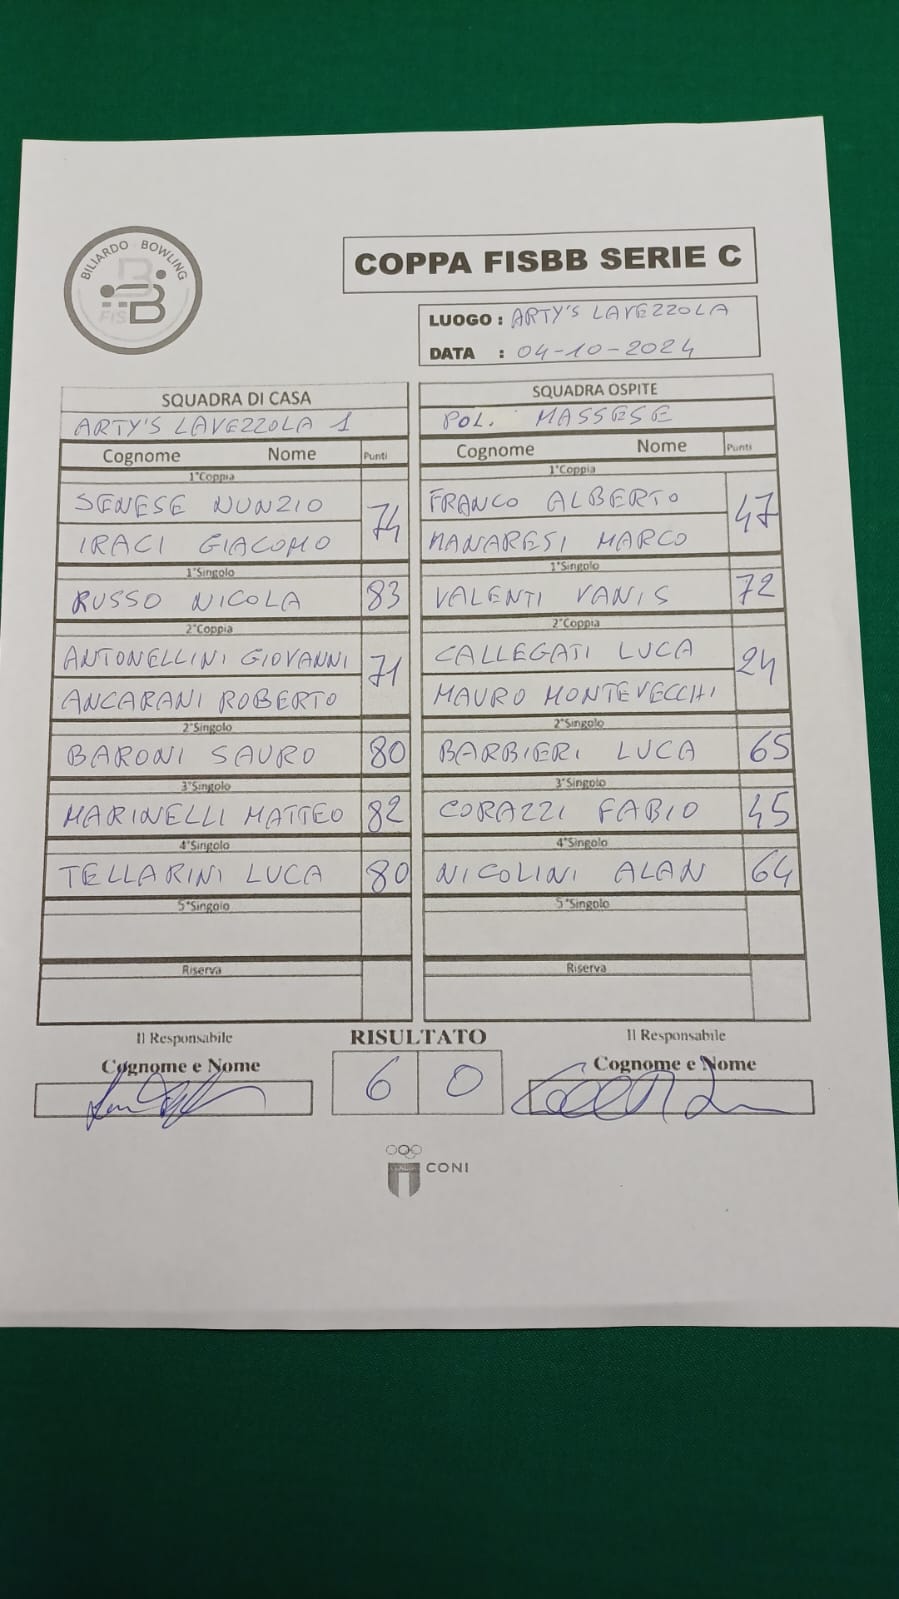 BILIARDO BOWLING
FIS
COPPA FISBB SERIE C
LUOGO : ARTY'S LAVEZZOLA
DATA : 04-10-2024
SQUADRA DI CASA
ARTY'S LAVEZZOLA 1
Cognome Nome Punti
1°Coppia
SENESE NUNZIO
74
IRACI GIACOMO
1°Singolo
RUSSO NICOLA 83
2°Coppia
ANTONELLINI GIOVANNI
71
ANCARANI ROBERTO
2°Singolo
BARONI SAURO 80
3°Singolo
MARINELLI MATTEO 82
4°Singolo
TELLARINI LUCA 80
5°Singolo
Riserva
SQUADRA OSPITE
POL. MASSESE
Cognome Nome Punti
1°Coppia
FRANCO ALBERTO
47
MANARESI MARCO
1°Singolo
VALENTI VANIS 72
2°Coppia
CALLEGATI LUCA
24
MAURO MONTEVECCHI
2°Singolo
BARBIERI LUCA 65
3°Singolo
CORAZZI FABIO 45
4°Singolo
NICOLINI ALAN 64
5°Singolo
Riserva
Il Responsabile
Cognome e Nome
RISULTATO
6 0
Il Responsabile
Cognome e Nome
CONI